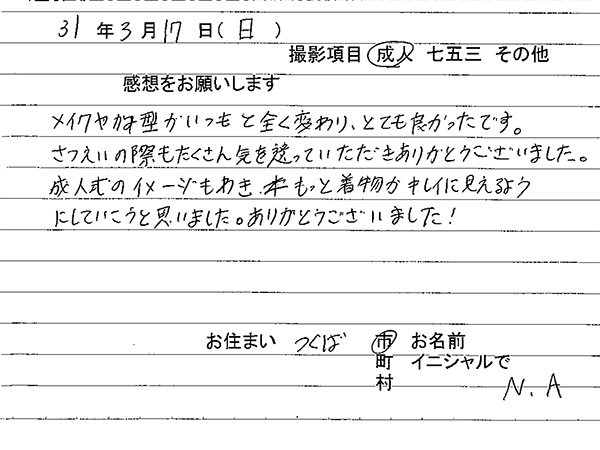 31 年 3 月 17 日 ( 日 )
撮影項目 成人 七五三 その他
感想をお願いします
メイクやかみ型がいつもと全く変わり、とても良かったです。
さつえいの際もたくさん気を遣っていただきありがとうございました。
成人式のイメージもわき、もっと着物がキレイに見えるよう
にしていこうと思いました。ありがとうございました!
お住まい つくば 市 お名前
町 イニシャルで
村 N.A